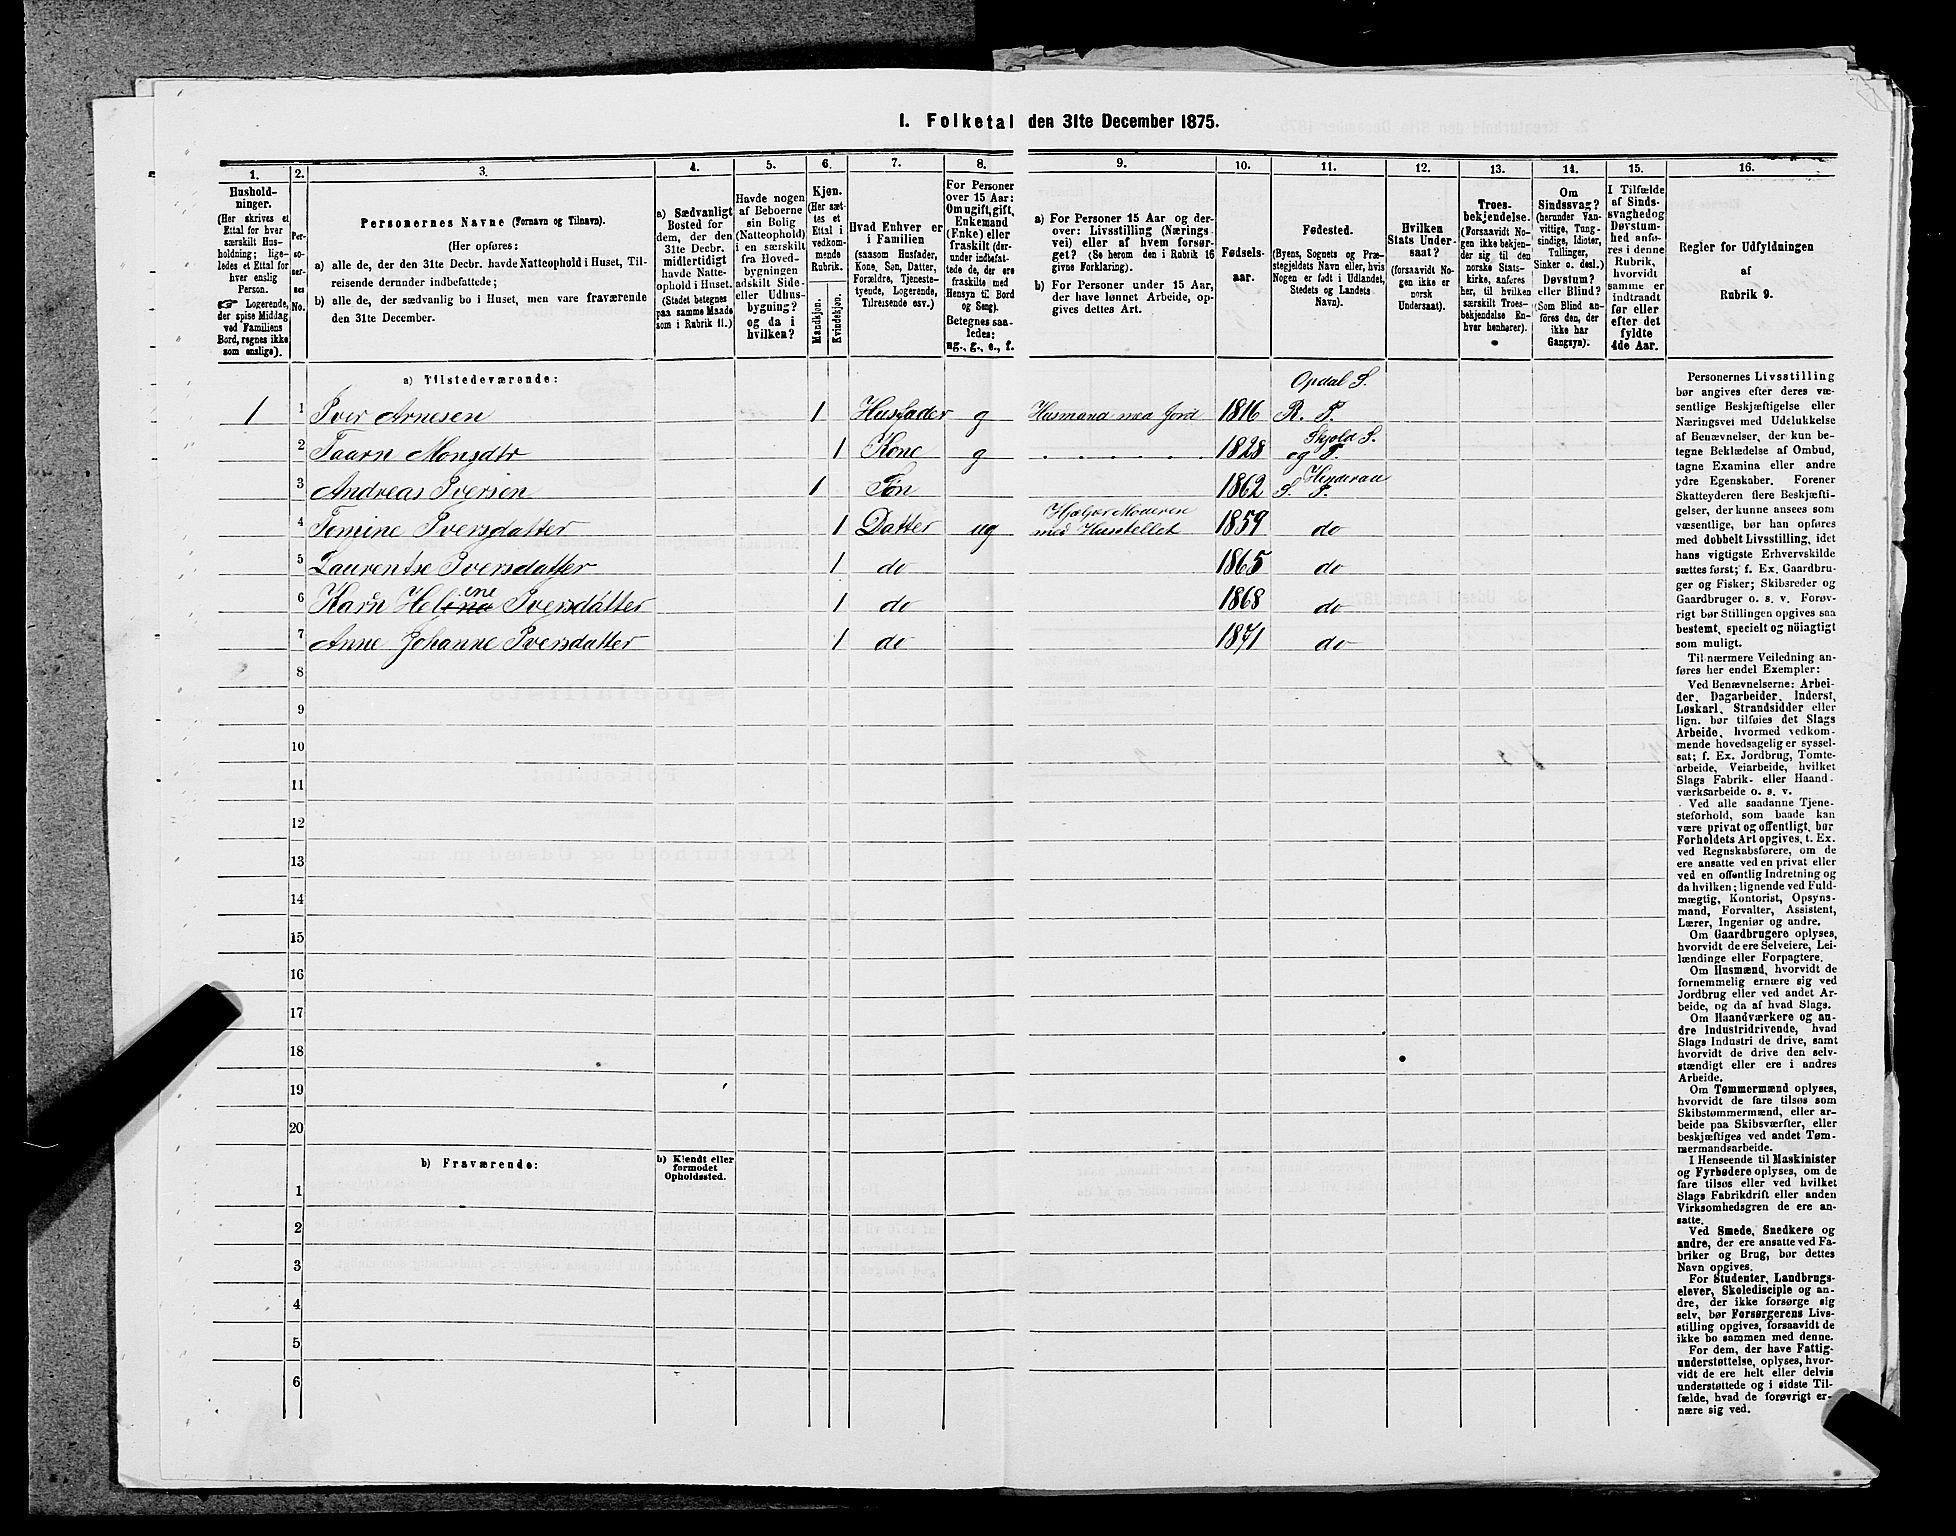 I. Folketal den 31te December 1875.
1. 2. 3. 4. 5. 6. 7. 8. 9. 10. 11. 12. 13. 14. 15. 16.
Hushold-
ninger.
(Her skrives et
Ettal for hver
særskilt Hus-
holdning; lige-
ledes et Ettal for
hver enslig
Person.
☞ Logerende,
der spise Middag
ved Familiens
Bord, regnes ikke
som enslige).
Per-
soner-
nes
No.
Personernes Navne (Fornavn og Tilnavn).
(Her opføres:
a) alle de, der den 31te Decbr. havde Natteophold i Huset, Til-
reisende derunder indbefattede;
b) alle de, der sædvanlig bo i Huset, men vare fraværende
den 31te December.
a) Sædvanligt
Bosted for
dem, der den
31te Decbr.
midlertidigt
havde Natte-
ophold i Huset.
(Stedet betegnes
paa samme Maade
som i Rubrik 11.)
Havde nogen
af Beboerne
sin Bolig
(Natteophold)
i en særskilt
fra Hoved-
bygningen
adskilt Side-
eller Udhus-
bygning?
og da i
hvilken?
Kjøn.
(Her sæt-
tes et
Ettal i
vedkom-
mende
Rubrik.
Mandkjøn.
Kvindekjøn.
Hvad Enhver er
i Familien
(saasom Husfader,
Kone, Søn, Datter,
Forældre, Tjeneste-
tyende, Logerende,
Tilreisende osv.)
For Personer
over 15 Aar:
Om ugift, gift,
Enkemand
(Enke) eller
fraskilt (der-
under indbefat-
tede de, der ere
fraskilte med
Hensyn til Bord
og Seng).
Betegnes saa-
ledes:
ug., g., e., f.
a) For Personer 15 Aar og der-
over: Livsstilling (Nærings-
vei) eller af hvem forsør-
get? (Se herom den i Rubrik 16
givne Forklaring).
b) For Personer under 15 Aar,
der have lønnet Arbeide, op-
gives dettes Art.
Fødsels-
aar.
Fødested.
(Byens, Sognets og Præ-
stegjeldets Navn eller, hvis
Nogen er født i Udlandet,
Stedets og Landets
Navn).
Hvilken
Stats Under-
saat?
(forsaavidt No-
gen ikke er
norsk
Undersaat).
Troes-
bekjendelse.
(Forsaavidt No-
gen ikke bekjen-
der sig til den
norske Stats-
kirke, anføres
her, til hvilken
særskilt Troes-
bekjendelse En-
hver henhører).
Om
Sindssvag?
(herunder Van-
vittige, Tung-
sindige, Idioter,
Tullinger,
Sinker o. desl.)
Døvstum?
eller Blind?
(Som Blind an-
føres den, der
ikke har
Gangsyn).
I Tilfælde
af Sinds-
svaghed og
Døvstum-
hed anfø-
res i denne
Rubrik,
hvorvidt
samme er
indtraadt
før eller
efter det
fyldte
4de Aar.
Regler for Udfyldningen
af
Rubrik 9.
a) Tilstedeværende:
Opdal S.
1 1 Iver Arnesen 1 Husfader g Husmand med Jord 1816 R. P.
Skjold S.
2 Taarn Monsdtr 1 Kone g 1828 og P.
Hinderaa
3 Andreas Iversen 1 Søn 1862 S. P.
Hjælper Moderen
4 Tomine Iversdatter 1 Datter ug med Husstellet 1859 do
5 Laurentse Iversdatter 1 do 1865 do
ene
6 Karn Helina Iversdatter 1 do 1868 do
7 Anne Johanne Iversdatter 1 do 1871 do
8
9
10
11
12
13
14
15
16
17
18
19
20
b) Fraværende:
b) Kjendt eller
formodet
Opholdssted.
1
2
3
4
5
6
Personernes Livsstilling
bør angives efter deres væ-
sentlige Beskjæftigelse eller
Næringsvei med Udelukkelse
af Benævnelser, der kun be-
tegne Beklædelse af Ombud,
tagne Examina eller andre
ydre Egenskaber. Forener
Skatteyderen flere Beskjæfti-
gelser, der kunne ansees som
væsentlige, bør han opføres
med dobbelt Livsstilling, idet
hans vigtigste Erhvervskilde
sættes først; f. Ex. Gaardbru-
ger og Fisker; Skibsreder og
Gaardbruger o. s. v. Forøv-
rigt bør Stillingen opgives saa
bestemt, specielt og nöiagtigt
som muligt.
Til nærmere Veiledning an-
føres her endel Exempler:
Ved Benævnelserne: Arbei-
der, Dagarbeider, Inderst,
Løskarl, Strandsidder eller
lign. bør tilføies det Slags
Arbeide, hvormed vedkom-
mende hovedsagelig er syssel-
sat; f. Ex. Jordbrug, Tomte-
arbeide, Veiarbeide, hvilket
Slags Fabrik- eller Haand-
værksarbeide o. s. v.
Ved alle saadanne Tjene-
steforhold, som baade kan
være privat og offentligt, bør
Forholdets Art opgives, t. Ex.
ved Regnskabsførere, om de
ere ansatte ved en privat eller
ved en offentlig Indretning og
da hvilken; lignende ved Fuld-
mægtig, Kontorist, Opsyns-
mand, Forvalter, Assistent,
Lærer, Ingeniør og andre.
Om Gaardbrugere oplyses,
hvorvidt de ere Selveiere, Lei-
lændinge eller Forpagtere.
Om Husmænd, hvorvidt de
fornemmelig ernære sig ved
Jordbrug eller ved andet Ar-
beide, og da af hvad Slags.
Om Haandværkere og an-
dre Industridrivende, hvad
Slags Industri de drive, samt
hvorvidt de drive den selv-
stændigt eller ere i andres
Arbeide.
Om Tømmermænd oplyses,
hvorvidt de fare tilsøs som
Skibstømmermænd, eller ar-
beide paa Skibsværfter, eller
beskjæftiges ved andet Tøm-
mermandsarbeide.
I Henseende til Maskinister
og Fyrbødere oplyses, om de
fare tilsøs eller ved hvilket
Slags Fabrikdrift eller anden
Virksomhedsgren de ere an-
satte.
Ved Smede, Snedkere og
andre, der ere ansatte ved Fa-
briker og Brug, bør dettes
Navn opgives.
For Studenter, Landbrugs-
elever, Skoledisciple og an-
dre, der ikke forsørge sig
selv, bør Forsørgerens Livs-
stilling opgives, forsaavidt de
ikke bo sammen med denne.
For dem, der have Fattig-
understøttelse, oplyses, hvor-
vidt de ere helt eller delvis
understøttede og i sidste Til-
fælde, hvad de forøvrigt er-
nære sig ved.